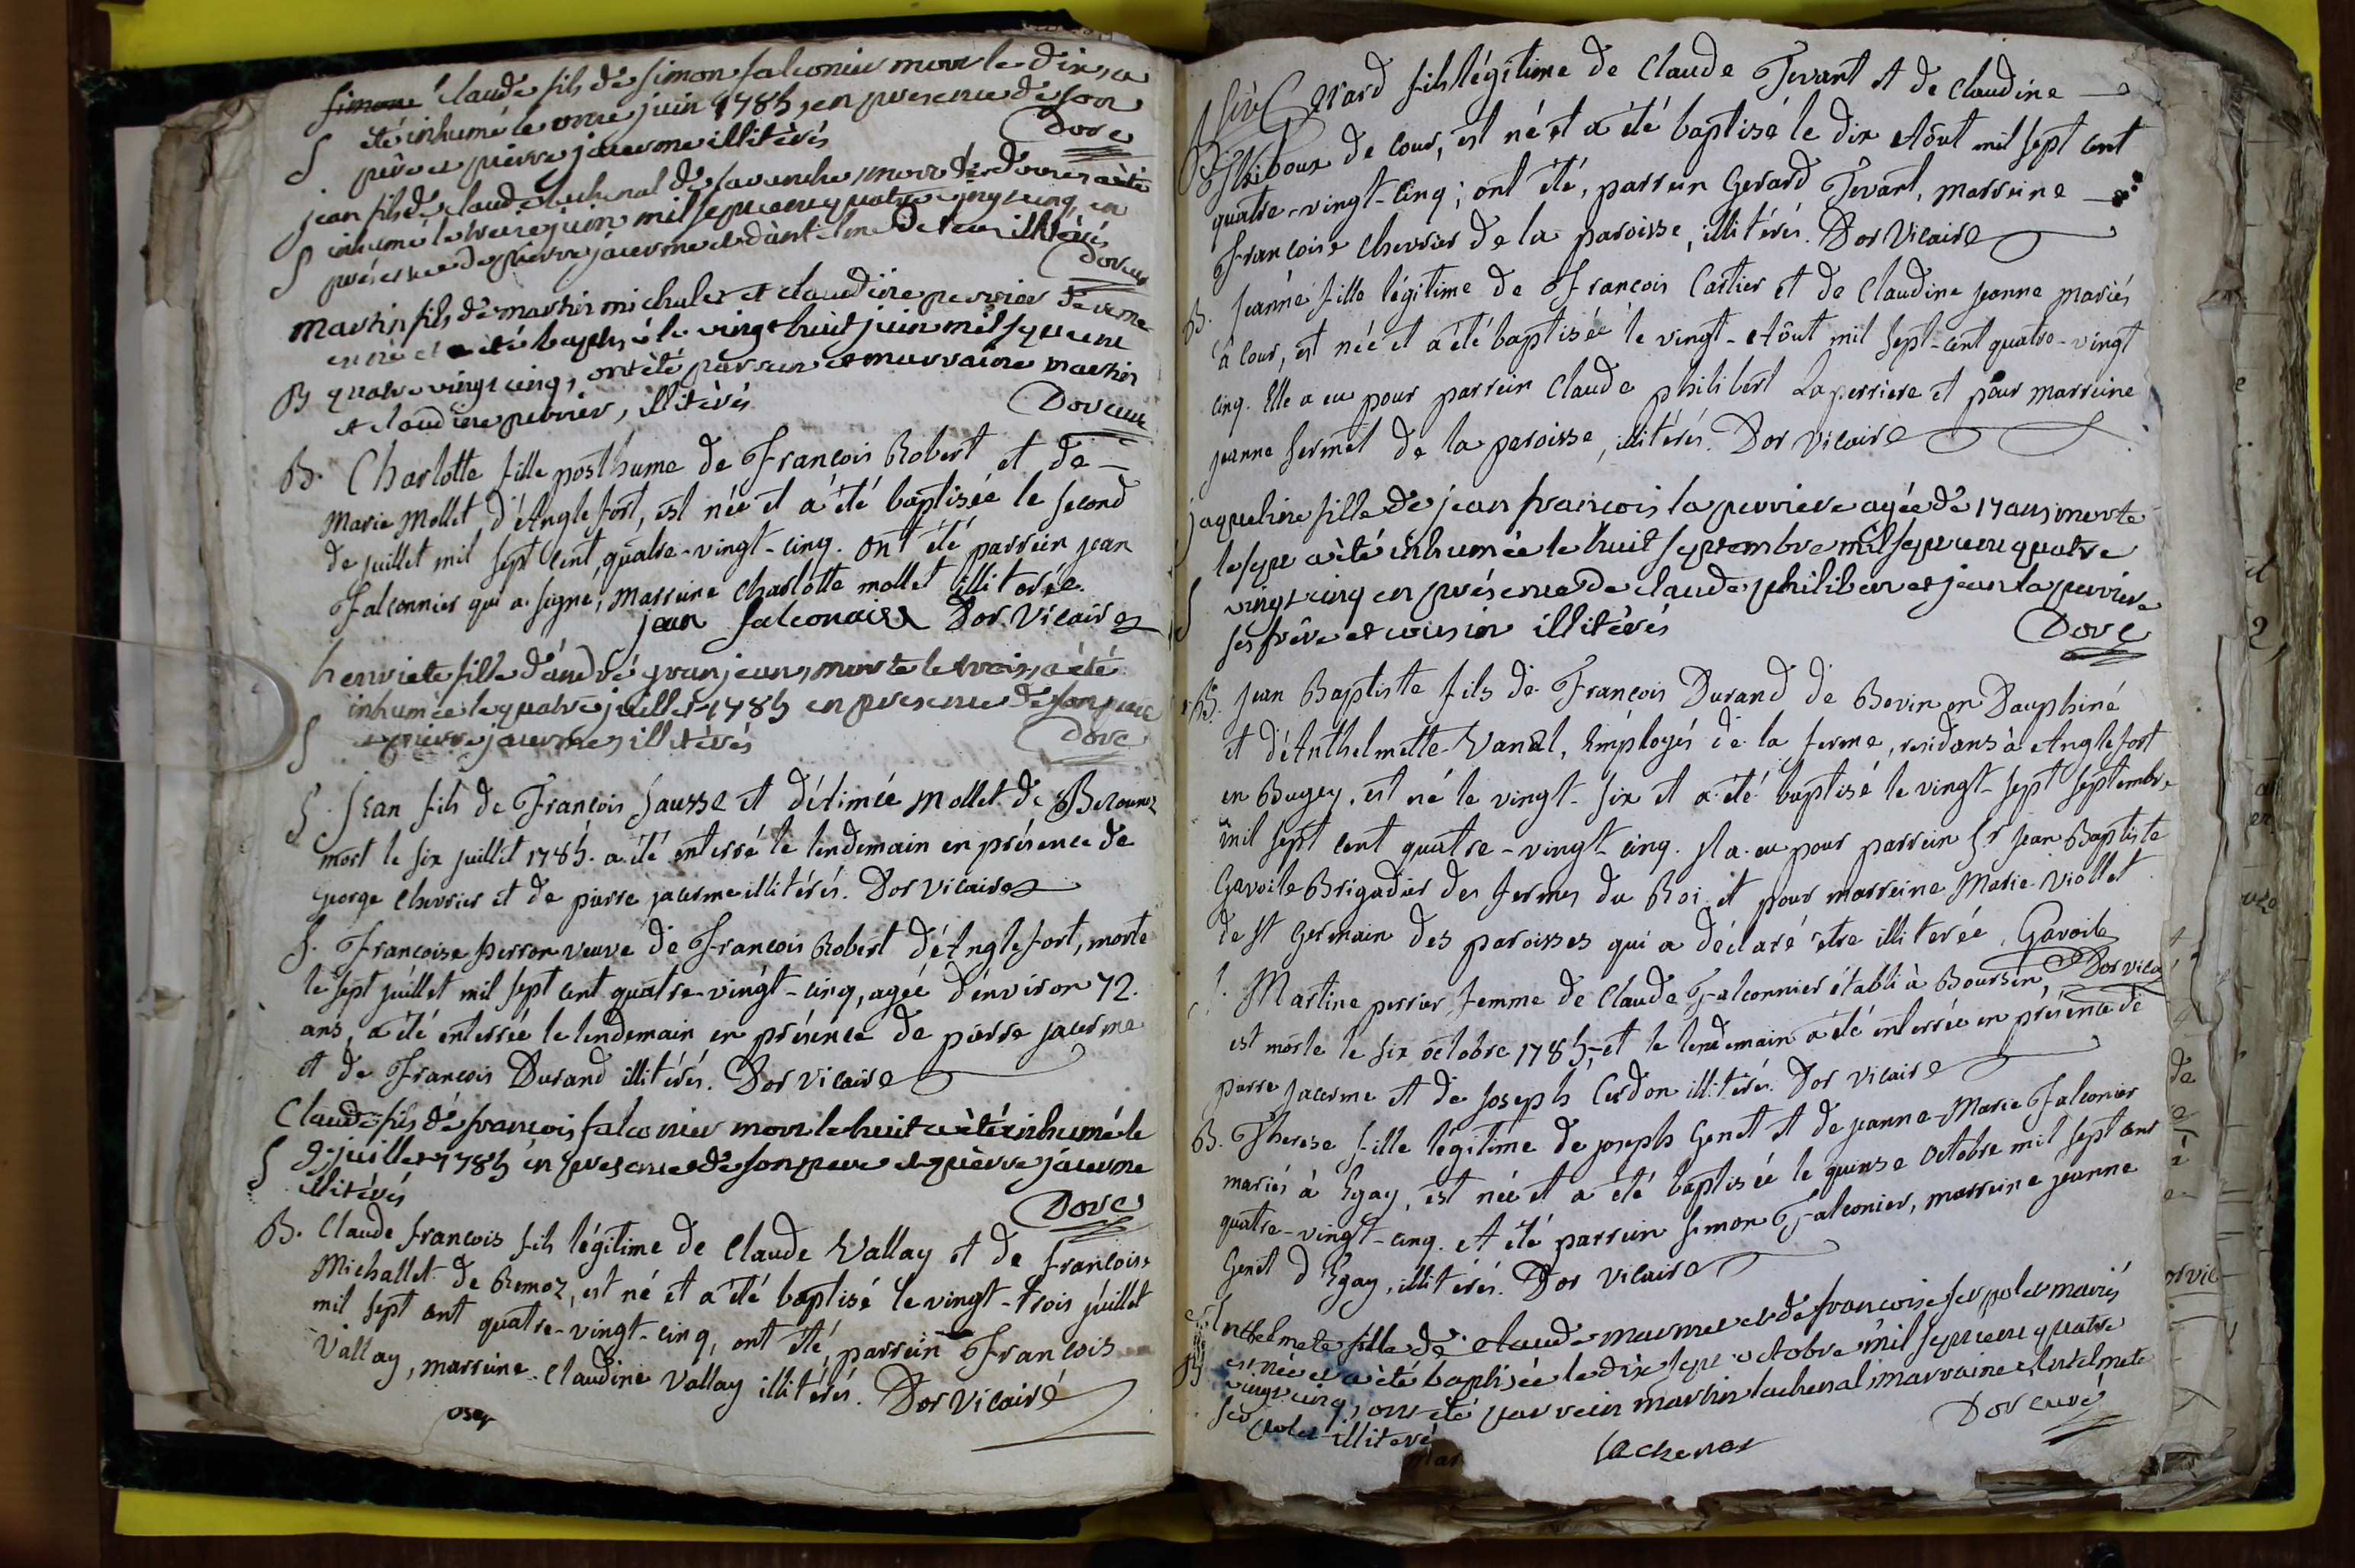 claude fils de simon falconier mort le dix, a
été inhumé le onze juin 1785, en presence de son
S pere et pierre jacerme illitèrés Dor c
jean fils de claude lachenal de mort le douze, a été
inhumé le treize juin mil sept cent quatre vingt cinq, en
S présence de pierre jacerme et illitérés
Dor curé
martin fils de martin michalet et claudine perrier
est né et a été baptisé le vingt huit juin mil sept cent
B quatre vingt cinq, ont été parrein et marraine martin
et claudine perrier, illitèrés Dor curé
B. Charlotte fille posthume de François Robert et de
Marie Mollet d'Anglefort, est née et a été baptisée le second
de juillet mil sept cent quatre-vingt-cinq. Ont été parrein jean
Falconnier qui a signé, Marreine Charlotte mollet illiterée.
jean falconair Dor Vicaire
henriete fille d'andré granjean, morte le trois, a été
inhumée le quatre juillet 1785 en presence de son pere
S et pierre jacerme, illitèrés Dor c
S. Jean fils de François Sausse et d'étimée Mollet de
mort le six juillet 1785. a été enterré le lendemain en présence de
George Chevrier et de pierre jacerme illitérés. Dor Vicaire
S. Françoise perron veuve de François Robert d'Anglefort, morte
le sept juillet mil sept cent quatre-vingt-cinq, agée d'environ 72.
ans, a été enterrée le lendemain en présence de pierre jacerme
et de François Durand illitérés. Dor Vicaire
Claude fils de francois falconier mort le huit a été inhumé le
S 9 juillet 1785 en presence de son pere et pierre jacerme
illitèrés Dor c
B. Claude françois fils légitime de Claude Vallay et de françoise
Michallet de Remoz, est né et a été baptisé le vingt-trois juillet
mil sept cent quatre-vingt-cinq, ont été, parrein François
Vallay, marreine Claudine Vallay illitérés. Dor Vicaire
fils légitime de Claude Jevant et de Claudine
de Cour, est né et a été baptisé le dix Aôut mil sept cent
quatre-vingt-cinq; ont été, parrein Gerard Jevant, marreine
Françoise Chevrier de la paroisse, illitérés. Dor Vicaire
B. Jeanne fille légitime de François Cartier et de Claudine Jeanne mariés
à Cour, est née et a été baptisée le vingt-Aôut mil sept-cent quatre-vingt
cinq. Elle a eu pour parrein Claude philibert Laperriere et pour marreine
jeanne fermet de la paroisse, illitérés. Dor Vicaire
jaqueline fille de jean francois la perriere agée de 17 ans morte
le sept a été inhumée le huit septembre mil sept cent quatre
S vingt cinq en présence de claude philibert et jean la perriere
ses frère et cousin illitèrés Dor c
B. Jean Baptiste fils de François Durand de Bevin en Dauphiné
et d'Anthelmette Employés de la ferme, residans à Anglefort
en Bugey, est né le vingt-six et a été baptisé le vingt-sept septembre
mil sept cent quatre-vingt cinq. Il a eu pour parrein Sr Jean Baptiste
Gavoile Brigadier des fermes du Roi et pour marreine Marie Viollet
de St Germain des paroisses qui a déclaré être illiterée. Gavoile
Dor Vicaire
S. Martine perrier femme de Claude Falconnier établi à Boursin,
est morte le six octobre 1785, et le lendemain a été enterrée en présence de
pierre Jacerme et de Joseph Cerdon illitérés. Dor Vicaire
B. Therese fille légitime de joseph Genet et de jeanne-Marie Falconier
mariés à Egay, est née et a été baptisée le quinze octobre mil sept cent
quatre-vingt-cinq. A été parrein Simon Falconier, marreine jeanne
Genet d'Egay, illitérés. Dor Vicaire
Antelmete fille de claude marmet et de francoise mariés
est née et a été baptisée le dix sept octobre mil sept cent quatre
vingt cinq, ont été parrein martin lachenal, marraine Antelmete
illiteré Dor curé
lachenal